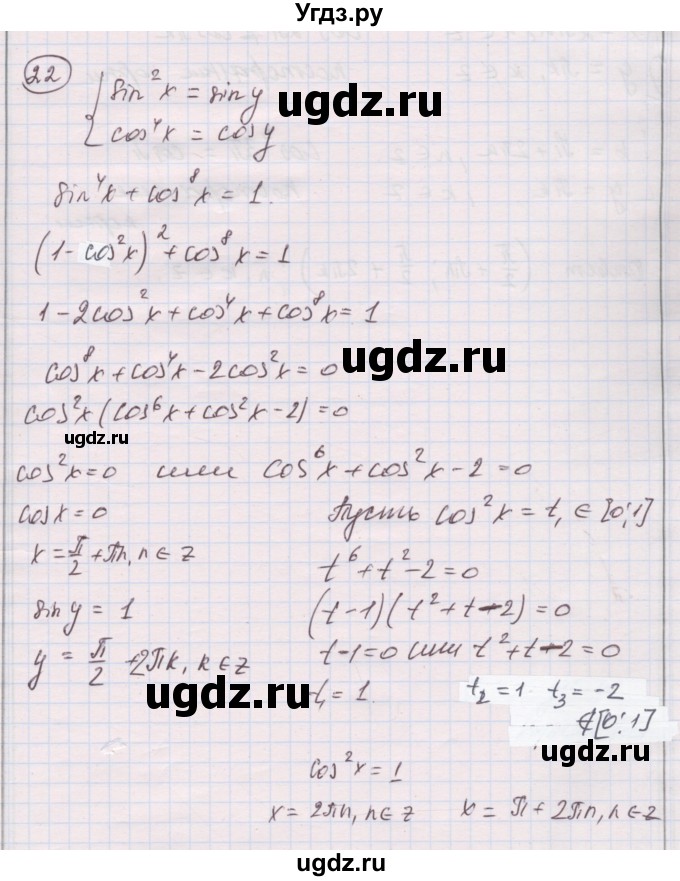 Угдз.ру
22
sin²x = sin y
cos⁴x = cos y
ugdz.ru
sin⁴x + cos⁸x = 1.
(1 - cos²x)² + cos⁸x = 1
ugdz.ru
1 - 2cos²x + cos⁴x + cos⁸x = 1
cos⁸x + cos⁴x - 2cos²x = 0
ugdz.ru
cos²x (cos⁶x + cos²x - 2) = 0
ugdz.ru
cos²x = 0 или cos⁶x + cos²x - 2 = 0
cos x = 0 Пусть cos²x = t, ∈ [0;1]
ugdz.ru
x = π/2 + πn, n ∈ z
t⁶ + t² - 2 = 0
sin y = 1 (t - 1)(t² + t - 2) = 0
ugdz.ru
y = π/2 + 2πk, k ∈ z t - 1 = 0 или t² + t - 2 = 0
ugdz.ru
t₁ = 1. t₂ = 1. t₃ = -2
∉ [0;1]
ugdz.ru
cos²x = 1
x = 2πn, n ∈ z x = π + 2πn, n ∈ z
ugdz.ru